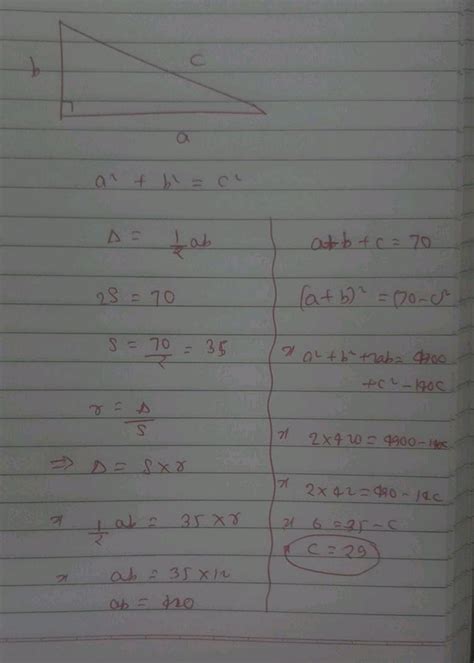 b
c
a
a² + b² = c²
Δ = 1/2 ab
2S = 70
S = 70/2 = 35
r = Δ/S
⇒ Δ = S × r
1/2 ab = 35 × r
ab = 35 × 12
ab = 420
a+b+c = 70
(a+b)² = (70-c)²
a²+b²+2ab = 4900
+c²-140c
2×420 = 4900-140c
2×42 = 490-14c
6 = 35-c
c = 29